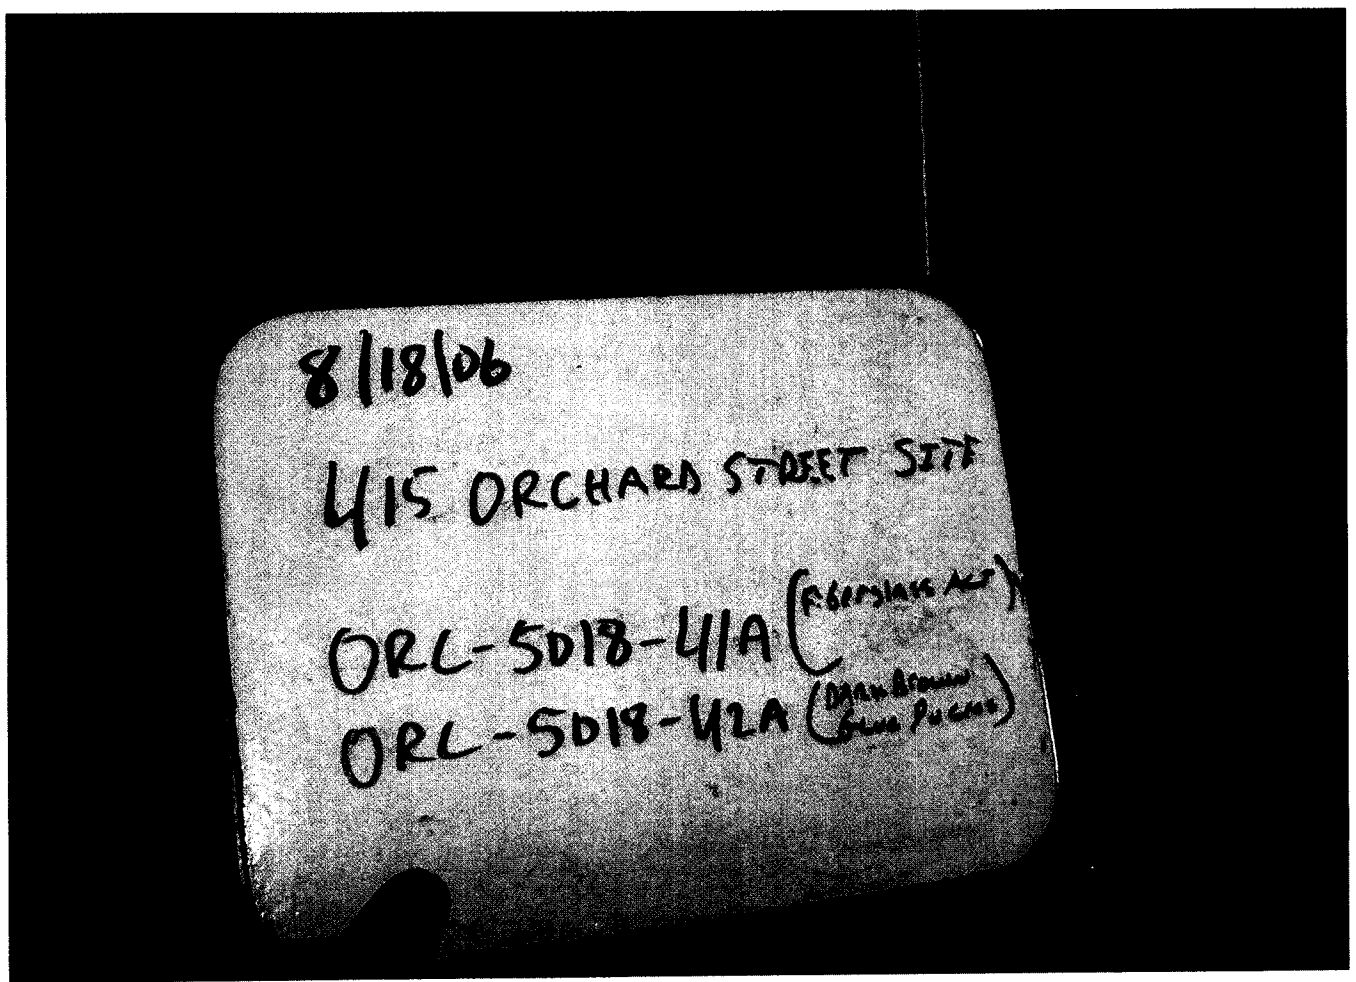 8/18/06
415 ORCHARD STREET SITE
ORC-5018-41A (Fiberglass ACT)
ORC-5018-42A (Dark Brown
Glue Pucks)